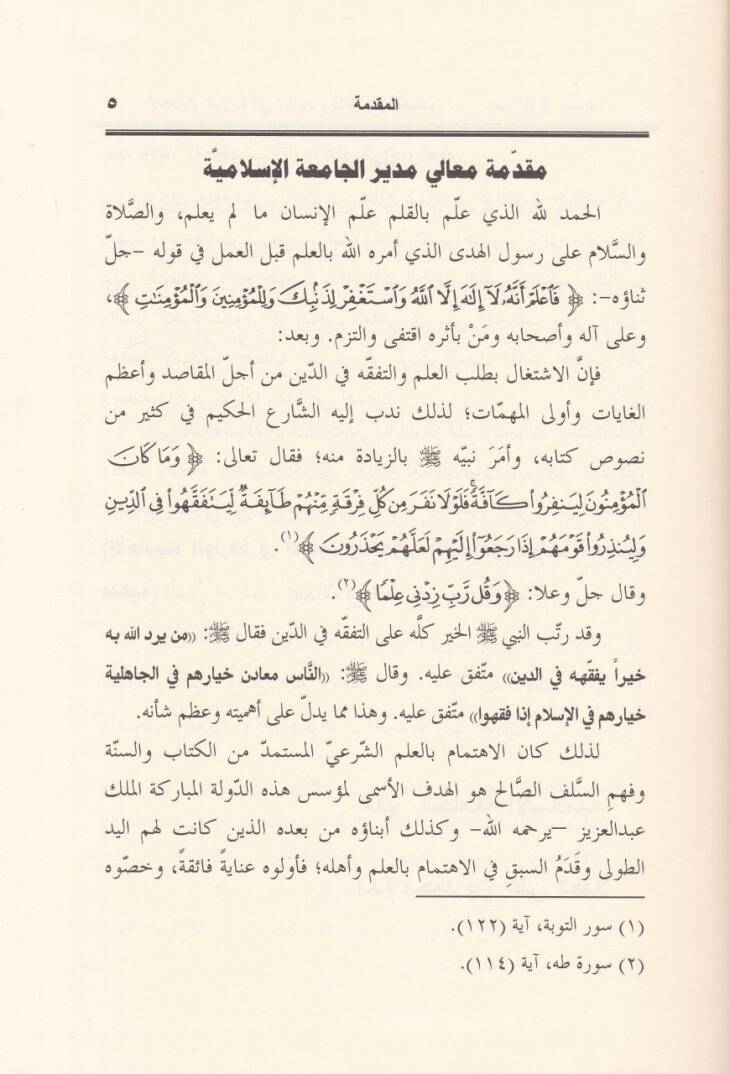 المقدمة ٥
مقدّمة معالي مدير الجامعة الإسلاميَّة
الحمد لله الذي علّم بالقلم علّم الإنسان ما لم يعلم، والصَّلاة
والسَّلام على رسول الهدى الذي أمره الله بالعلم قبل العمل في قوله –جلّ
ثناؤه–: ﴿ فَٱعۡلَمۡ أَنَّهُۥ لَآ إِلَٰهَ إِلَّا ٱللَّهُ وَٱسۡتَغۡفِرۡ لِذَنۢبِكَ وَلِلۡمُؤۡمِنِينَ وَٱلۡمُؤۡمِنَٰتِ ﴾،
وعلى آله وأصحابه ومَنْ بأثره اقتفى والتزم. وبعد:
فإنَّ الاشتغال بطلب العلم والتفقّه في الدّين من أجلّ المقاصد وأعظم
الغايات وأولى المهمّات؛ لذلك ندب إليه الشَّارع الحكيم في كثير من
نصوص كتابه، وأمَرَ نبيّه ﷺ بالزيادة منه؛ فقال تعالى: ﴿ وَمَا كَانَ
ٱلۡمُؤۡمِنُونَ لِيَنفِرُواْ كَآفَّةٗۚ فَلَوۡلَا نَفَرَ مِن كُلِّ فِرۡقَةٖ مِّنۡهُمۡ طَآئِفَةٞ لِّيَتَفَقَّهُواْ فِي ٱلدِّينِ
وَلِيُنذِرُواْ قَوۡمَهُمۡ إِذَا رَجَعُوٓاْ إِلَيۡهِمۡ لَعَلَّهُمۡ يَحۡذَرُونَ ﴾(١).
وقال جلّ وعلا: ﴿ وَقُل رَّبِّ زِدۡنِي عِلۡمٗا ﴾(٢).
وقد رتّب النبي ﷺ الخير كلَّه على التفقّه في الدّين فقال ﷺ: ((من يرد الله به
خيراً يفقّهه في الدين)) متّفق عليه. وقال ﷺ: ((النَّاس معادن خيارهم في الجاهلية
خيارهم في الإسلام إذا فقهوا)) متّفق عليه. وهذا مما يدلّ على أهميته وعظم شأنه.
لذلك كان الاهتمام بالعلم الشّرعيّ المستمدّ من الكتاب والسنّة
وفهمِ السَّلف الصَّالح هو الهدف الأسمى لمؤسس هذه الدّولة المباركة الملك
عبدالعزيز –يرحمه الله– وكذلك أبناؤه من بعده الذين كانت لهم اليد
الطولى وقَدَمُ السبقِ في الاهتمام بالعلم وأهله؛ فأولوه عنايةً فائقةً، وخصّوه
(١) سور التوبة، آية (١٢٢).
(٢) سورة طه، آية (١١٤).